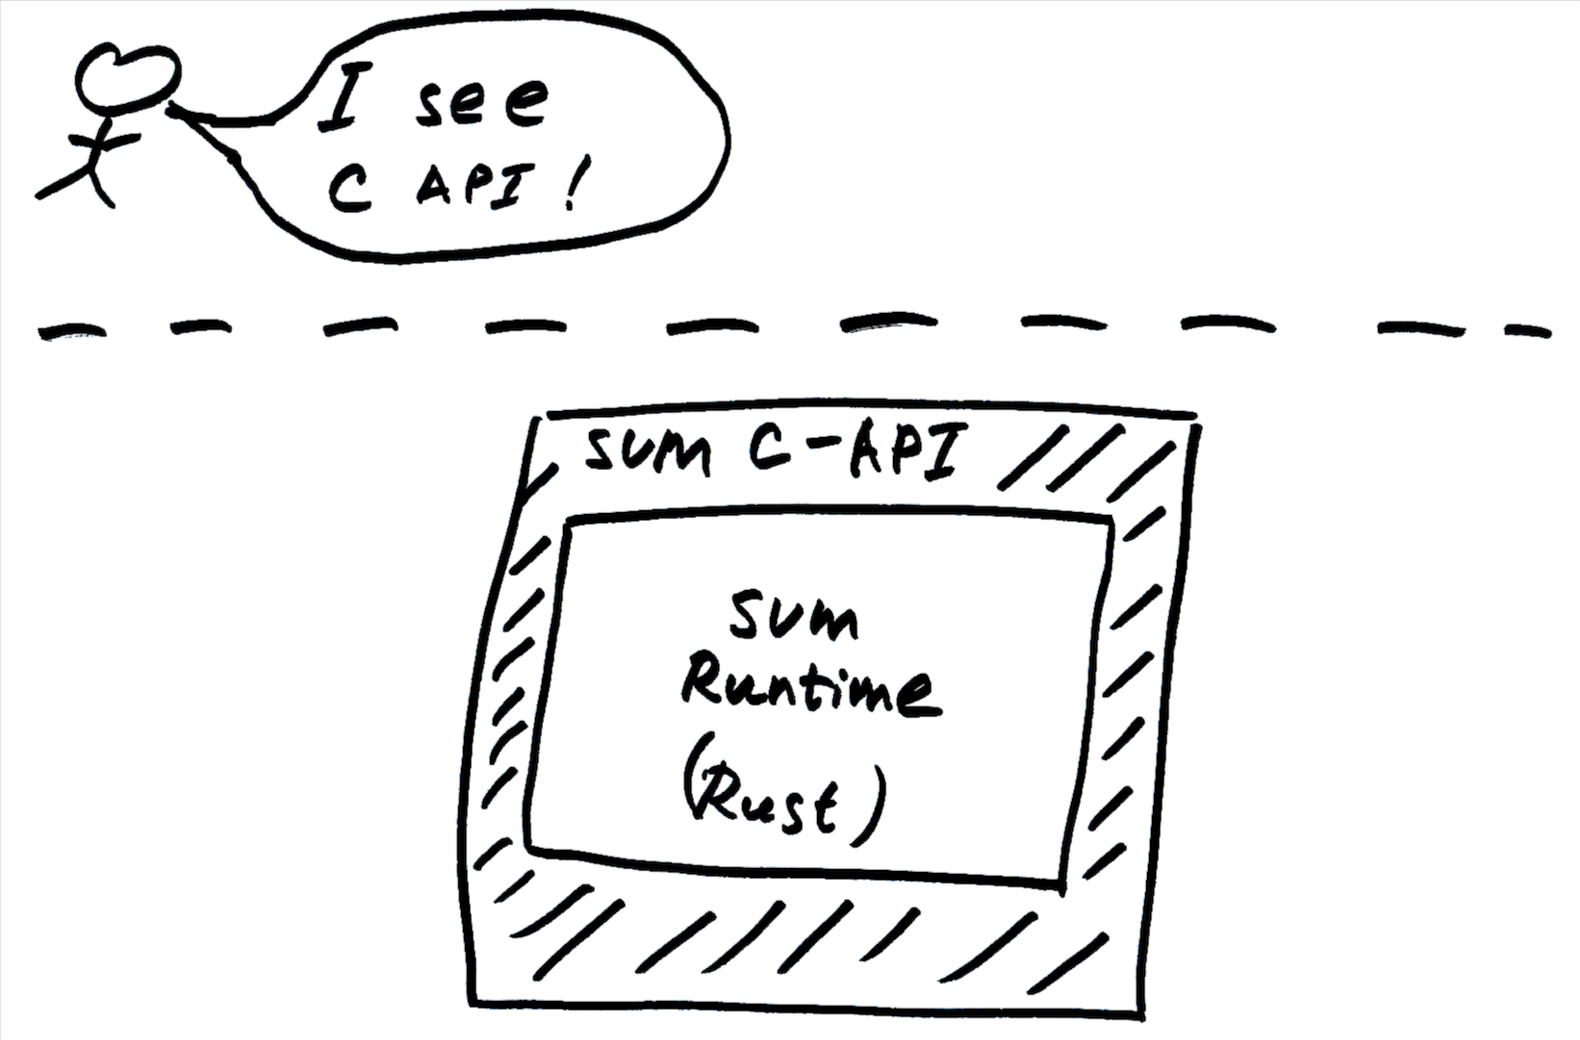 I see
C API!
sum C-API
sum
Runtime
(Rust)